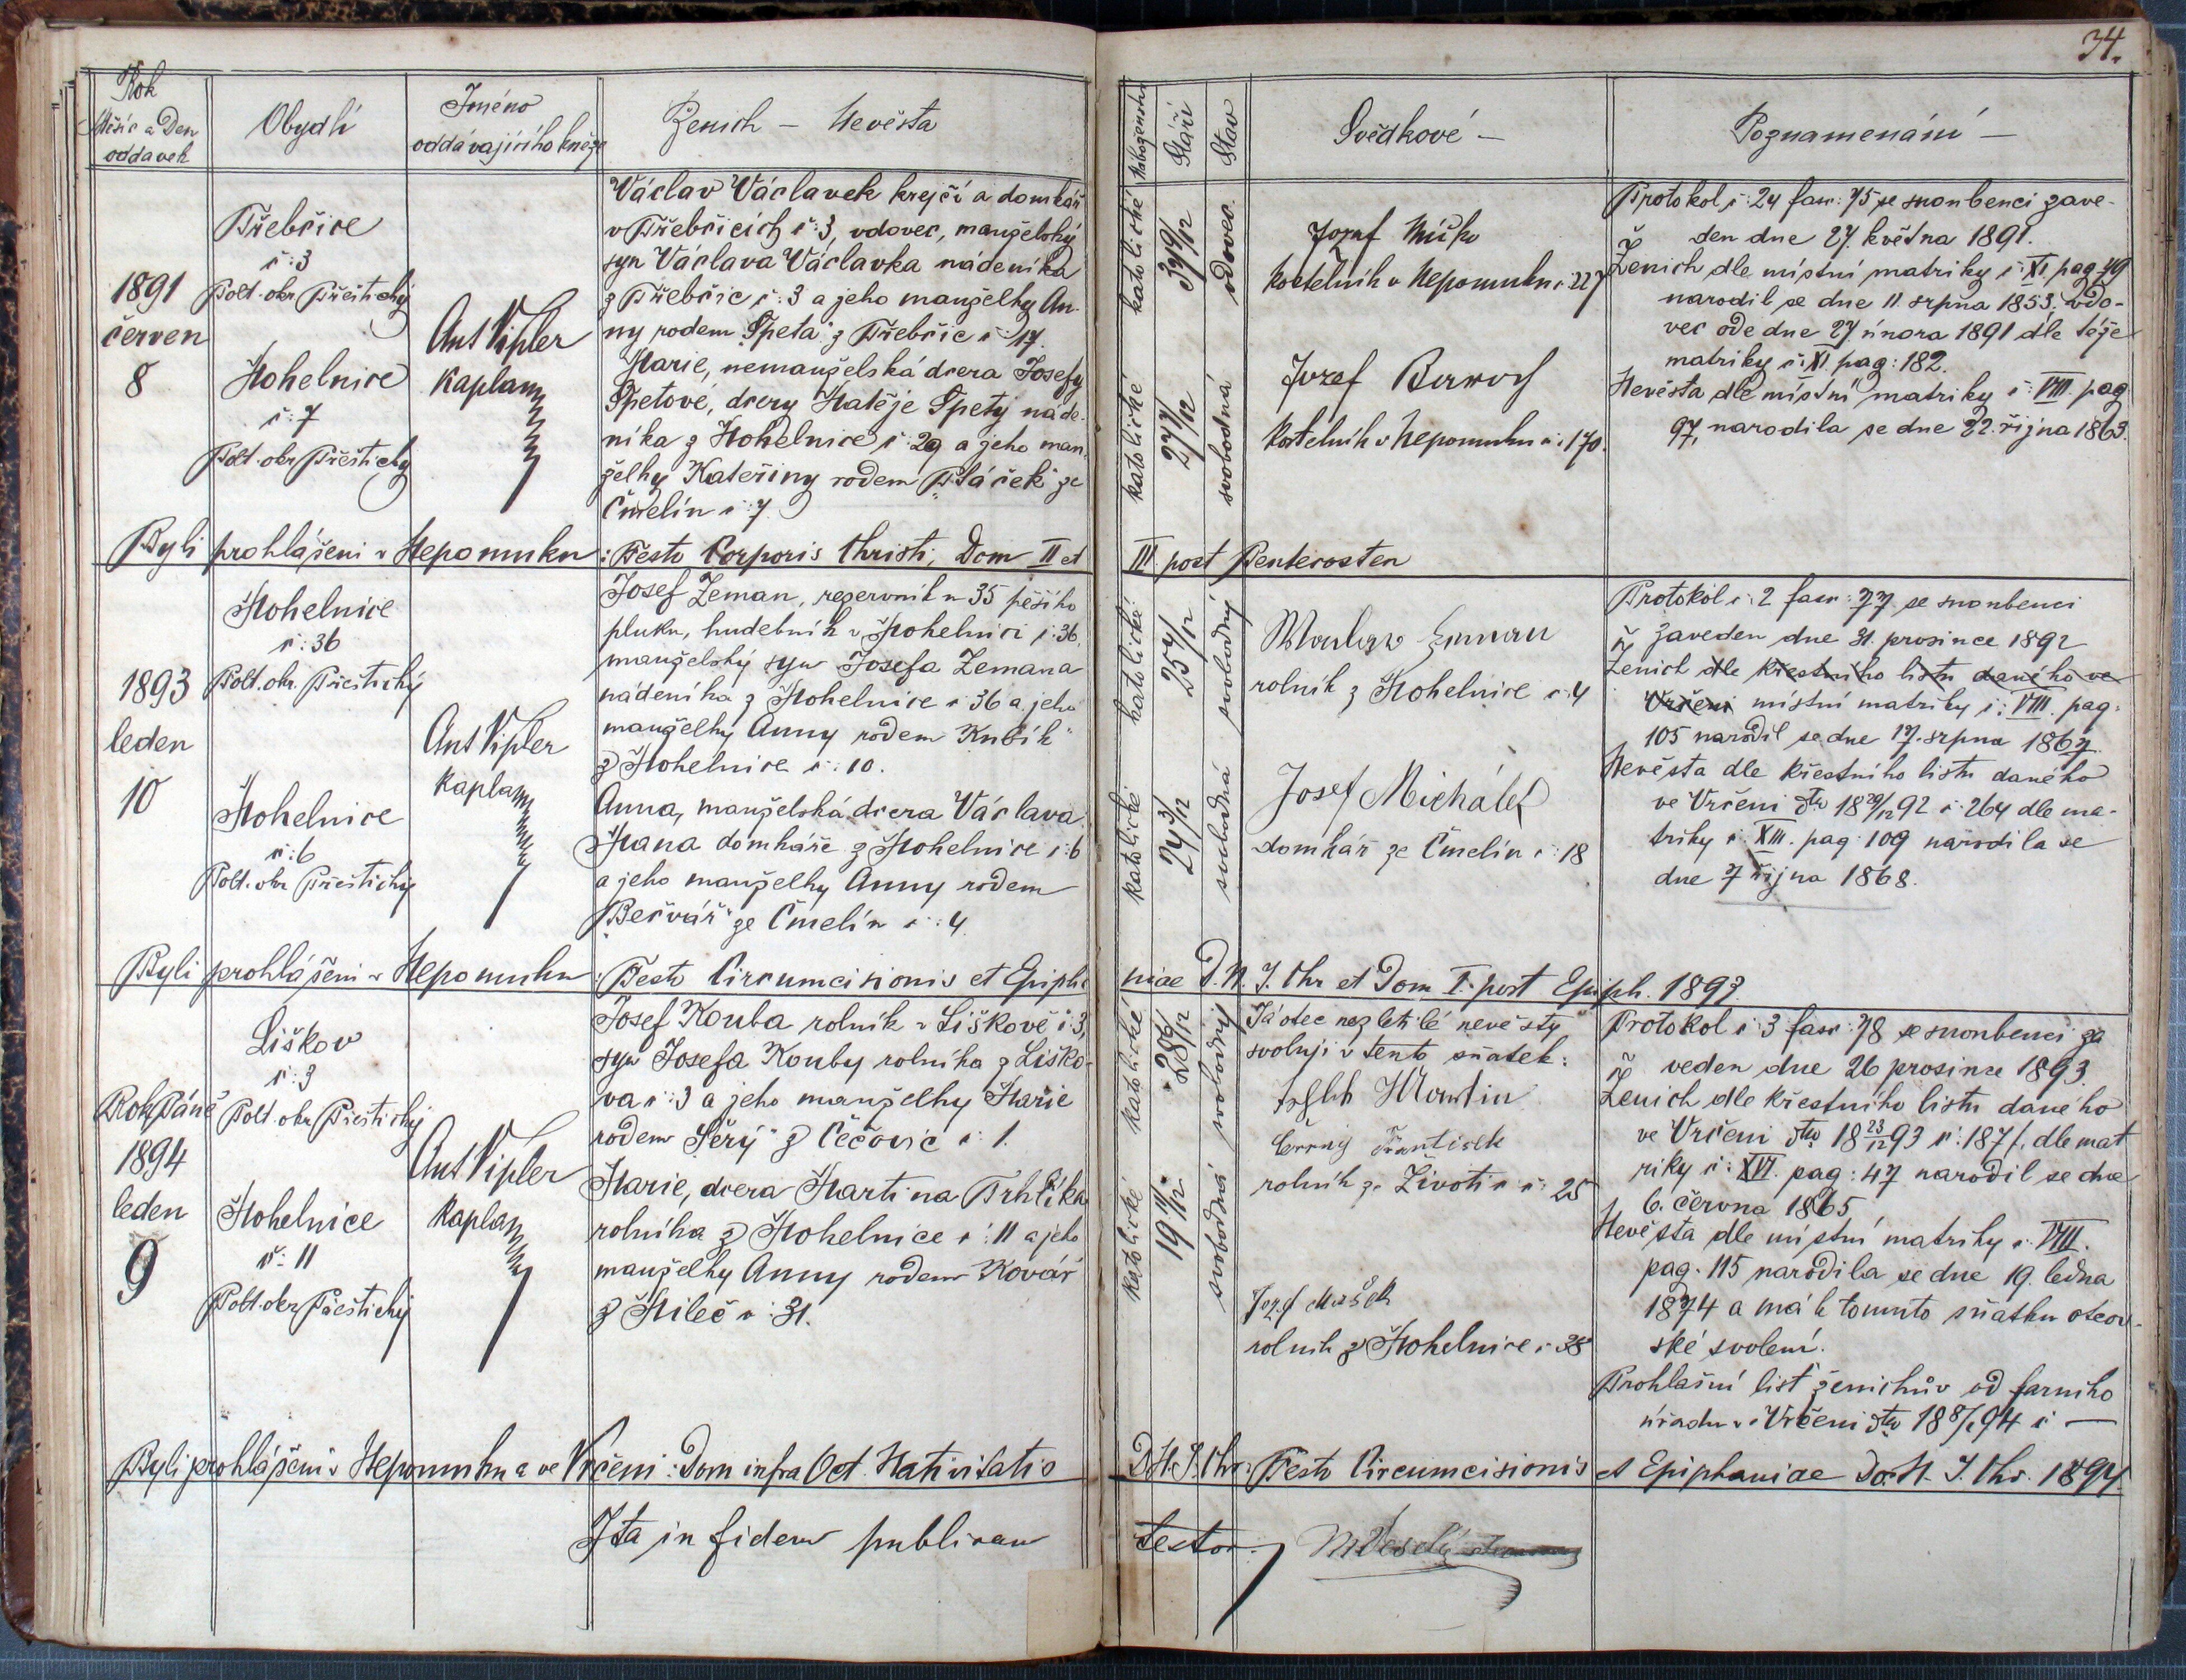 34.
Rok
Měsíc a Den
oddavek
Obydlí
Jméno
oddávajícího kněze
Ženich – Nevěsta
Náboženství
Stáří
Stav
Svědkové –
Poznamenání –
1891
červen
8
Třebčice
č: 3
Polt. okr Přeštický
Mohelnice
č: 7
Polt. okr Přeštický
Ant Vipler
kaplan
Václav Václavek krejčí a domkář
v Třebčicích č: 3, vdovec, manželský
syn Václava Václavka nádeníka
z Třebčic č: 3 a jeho manželky An-
ny rodem „Špeta" z Třebčic č: 17.
Marie, nemanželská dcera Josefy
Špetové, dcery Matěje Špety náde-
níka z Mohelnice č: 29 a jeho man-
želky Kateřiny rodem „Ptáček" ze
Čmelín č: 7
katolické
37 9/12
vdovec.
katolické
27 7/12
svobodná
Jozef
kostelník v Nepomuku č: 227
Jozef
kostelník v Nepomuku č: 170.
Protokol č: 24 fasc: 75 se snoubenci zave-
den dne 27. května 1891.
Ženich dle místní matriky č: XI. pag 49
narodil se dne 11. srpna 1853, vdo-
vec ode dne 27 února 1891 dle téže
matriky č: XI. pag: 182.
Nevěsta dle místní matriky č: VIII. pag
97, narodila se dne 22. října 1863.
Byli prohlášeni v Nepomuku: Festo Corporis Christi, Dom II et III. post Pentecosten
1893
leden
10
Mohelnice
č: 36
Polt. okr. Přeštický
Mohelnice
č: 6
Polt. okr Přeštický
Ant Vipler
kaplan
Josef Zeman, reservník u 35 pěšího
pluku, hudebník v Mohelnici č: 36,
manželský syn Josefa Zemana
nádeníka z Mohelnice č: 36 a jeho
manželky Anny rodem „Kubík"
z Mohelnice č: 10.
Anna, manželská dcera Václava
Mana domkáře z Mohelnice č: 6
a jeho manželky Anny rodem
„Bečvář" ze Čmelín č: 4.
katolické
25 4/12
svobodný
katolické
24 3/12
svobodná
Zeman
rolník z Mohelnice č: 4
Josef Michálek
domkář ze Čmelín č: 18
Protokol č: 2 fasc: 77. se snoubenci
zaveden dne 31. prosince 1892
Ženich dle křestního listu daného ve
Vrčeni místní matriky č: VIII. pag:
105 narodil se dne 17. srpna 1867.
Nevěsta dle křestního listu daného
ve Vrčeni dto 18 29/12 92 č: 264 dle ma-
triky č: XIII. pag: 109 narodila se
dne 7 října 1868.
Byli prohlášeni v Nepomuku: Festo Circumcisionis et Epipha niae D. N. J. Chr et Dom I. post Epiph. 1893.
Rok Páně
1894
leden
9
Liškov
č: 3
Polt okr Přeštický
Mohelnice
č: 11
Polt. okr Přeštický
Ant Vipler
kaplan
Josef Kouba rolník v Liškově č: 3,
syn Josefa Kouby rolníka z Liško-
va č: 3 a jeho manželky Marie
rodem „Šerý" z Čečovic č: 1.
Marie, dcera Martina Trhlíka
rolníka z Mohelnice č: 11 a jeho
manželky Anny rodem Kovář
z Mileč č: 31.
katolické
28 6/12
svobodný
katolické
19 11/12
svobodná
Já otec nezletilé nevěsty
svoluji v tento sňatek:
Martin
Černý František
rolník ze Životic č: 25
Jozef Mašek
rolník z Mohelnice č: 38
Protokol č: 3 fasc: 78 se snoubenci za
veden dne 26 prosince 1893.
Ženich dle křestního listu daného
ve Vrčeni dto 18 23/12 93 č: 187/. dle mat
riky č: XVI. pag: 47 narodil se dne
6. června 1865
Nevěsta dle místní matriky č: VIII.
pag. 115 narodila se dne 19. ledna
1874 a má k tomuto sňatku otcov-
ské svolení.
Prohlašní list ženichův od farního
úřadu ve Vrčeni dto 18 8/1 94 č –
Byli prohlášeni v Nepomuku a ve Vrčeni: Dom infra Oct. Nativitatis D. N. J. Chr. Festo Circumcisionis et Epiphaniae Do. N. J. Chr. 1894.
Ita in fidem publicam testor. Veselý